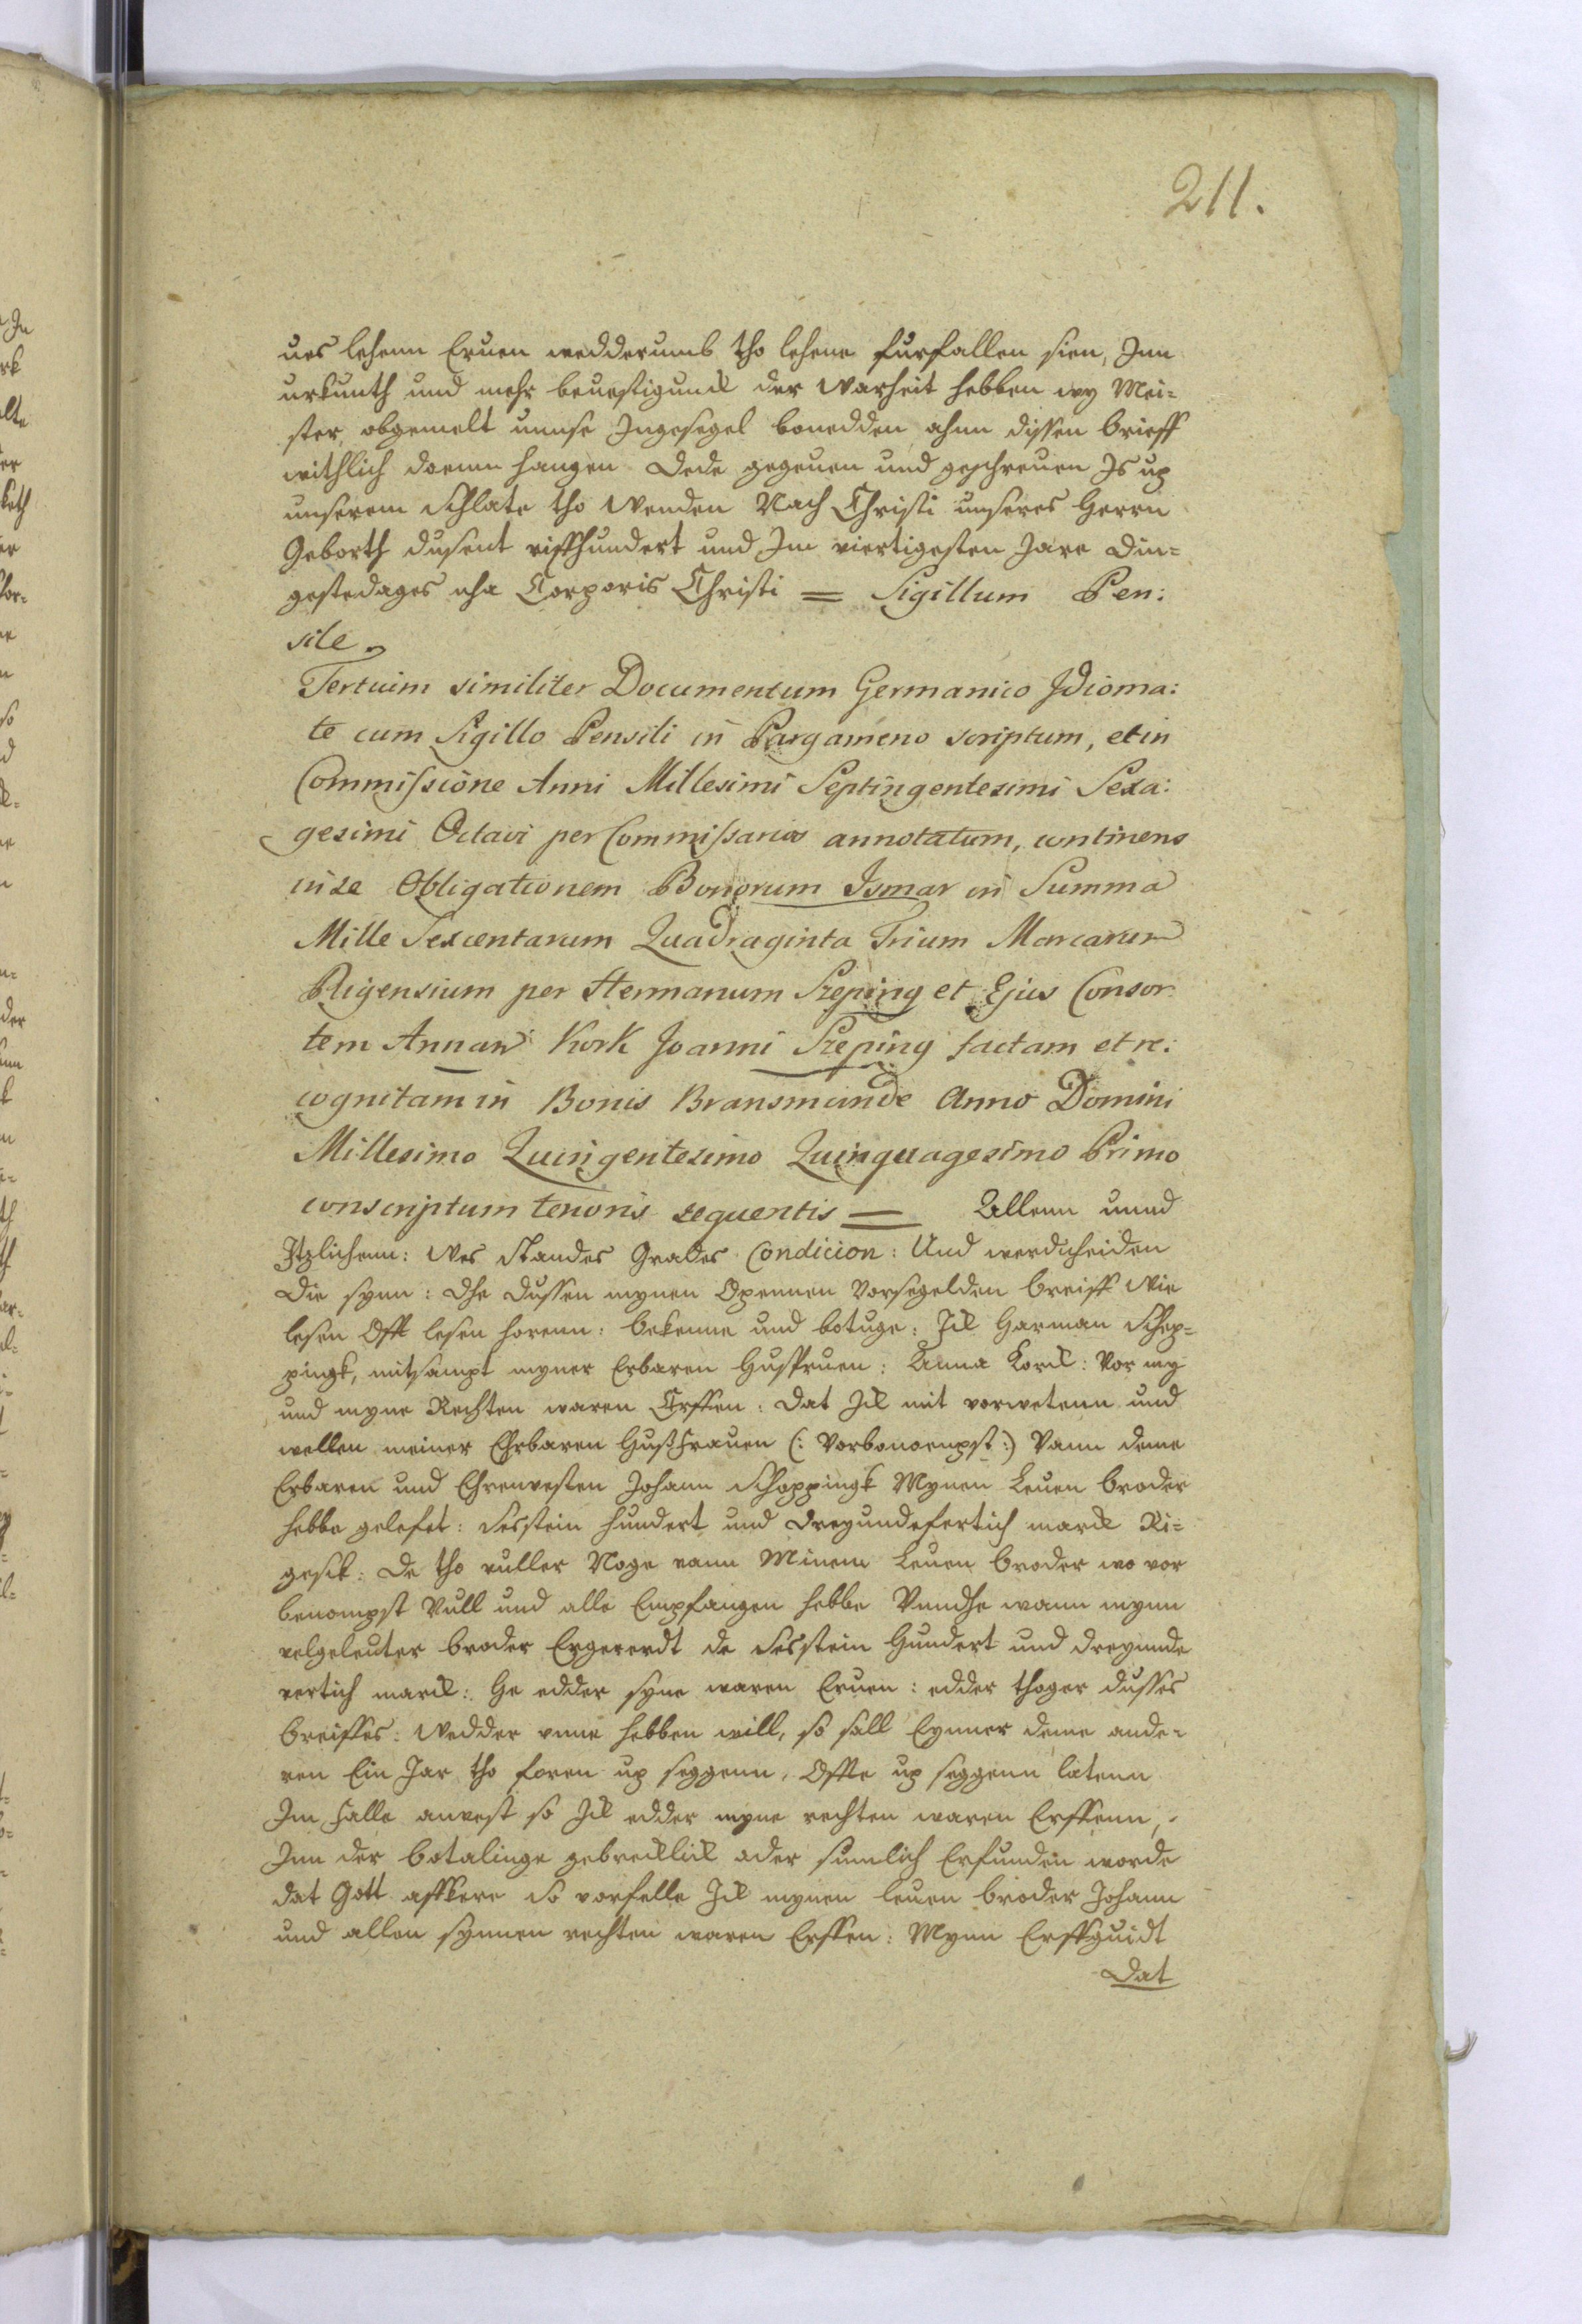 211.
ues lehenn Eruen wedderumb tho lehene furfallen sien, Inn
urkunth und mehr beuestigunck der Warheit hebben wy Mei=
ster, obgemelt unnse Ingesegel bonedden ahnn dissen brieff
withlich doenn hangen Dede gegeuen und geschreuen Is up
unserem Schlate tho Wenden Nach Christi unseres Herrn
Geborth dusent viffhundert und Im viertigesten Jare Din=
gestedages nha Corporis Christi = Sigillum Pen:
sile.
Tertium similiter Documentum Germanico Idioma:
te cum Sigillo Pensili in Pargameno scriptum, et in
Commissione Anni Millesimi Septingentesimi Sexa:
gesimi Octavi per Commissarios annotatum, continens
in se Obligationem Bonorum Ismar in Summa
Mille Sexcentarum Quadraginta Trium Marcarum
Rigensium per Hermanum Szeping et Ejus Consor:
tem Annam Kork Joanni Szeping factam et re:
cognitam in Bonis Bransmunde Anno Domini
Millesimo Quingentesimo Quinquagesimo Primo
conscriptum tenoris sequentis = Allenn unnd
Itzlichenn: Wes Standes Grades Condicion: Und werdicheiden
Die synn: Dhe dussen mynen Opennen Vorsegelden breiff Wie
lesen Offt lesen horenn: bekenne und betuge: Ick Harman Schep=
pingk, mitsampt myner Erbaren Husfruen: Anna Korck: Vor my
und myne Rechten waren Erffen: Dat Ick mit vorwetenn und
wellen meiner Ehrbaren Hußfrauen (: Vorbonoempst:) Vann deme
Erbaren und Ehrenvesten Johann Schoppingk Mynen Leuen broder
hebbe gelefet: Sesstein hundert und dreyundefertich marck Ri=
gesck: De tho vuller Noge vann Minem Leuen broder wo vor
benompst Vull und alle Empfangen hebbe Vnndhe wann mynn
velgeleuter broder Ergererdt de Sesstein Hundert und dreyunde
vertich marck: He edder syne waren Eruen: edder thoger dusses
breiffes: Wedder vnne hebben will, so sall Eynner deme ande=
ren Ein Jar tho foren up seggenn, Offte up seggenn latenn
Im Falle anvest so Ick edder myne rechten waren Erffenn,
Inn der botalinge gebrecklick oder sumlich Erfunden worde
dat Gott affkere So vorfelle Ick mynen leuen broder Johann
und allen synnen rechten waren Erffen: Mynn Erffguidt
Dat